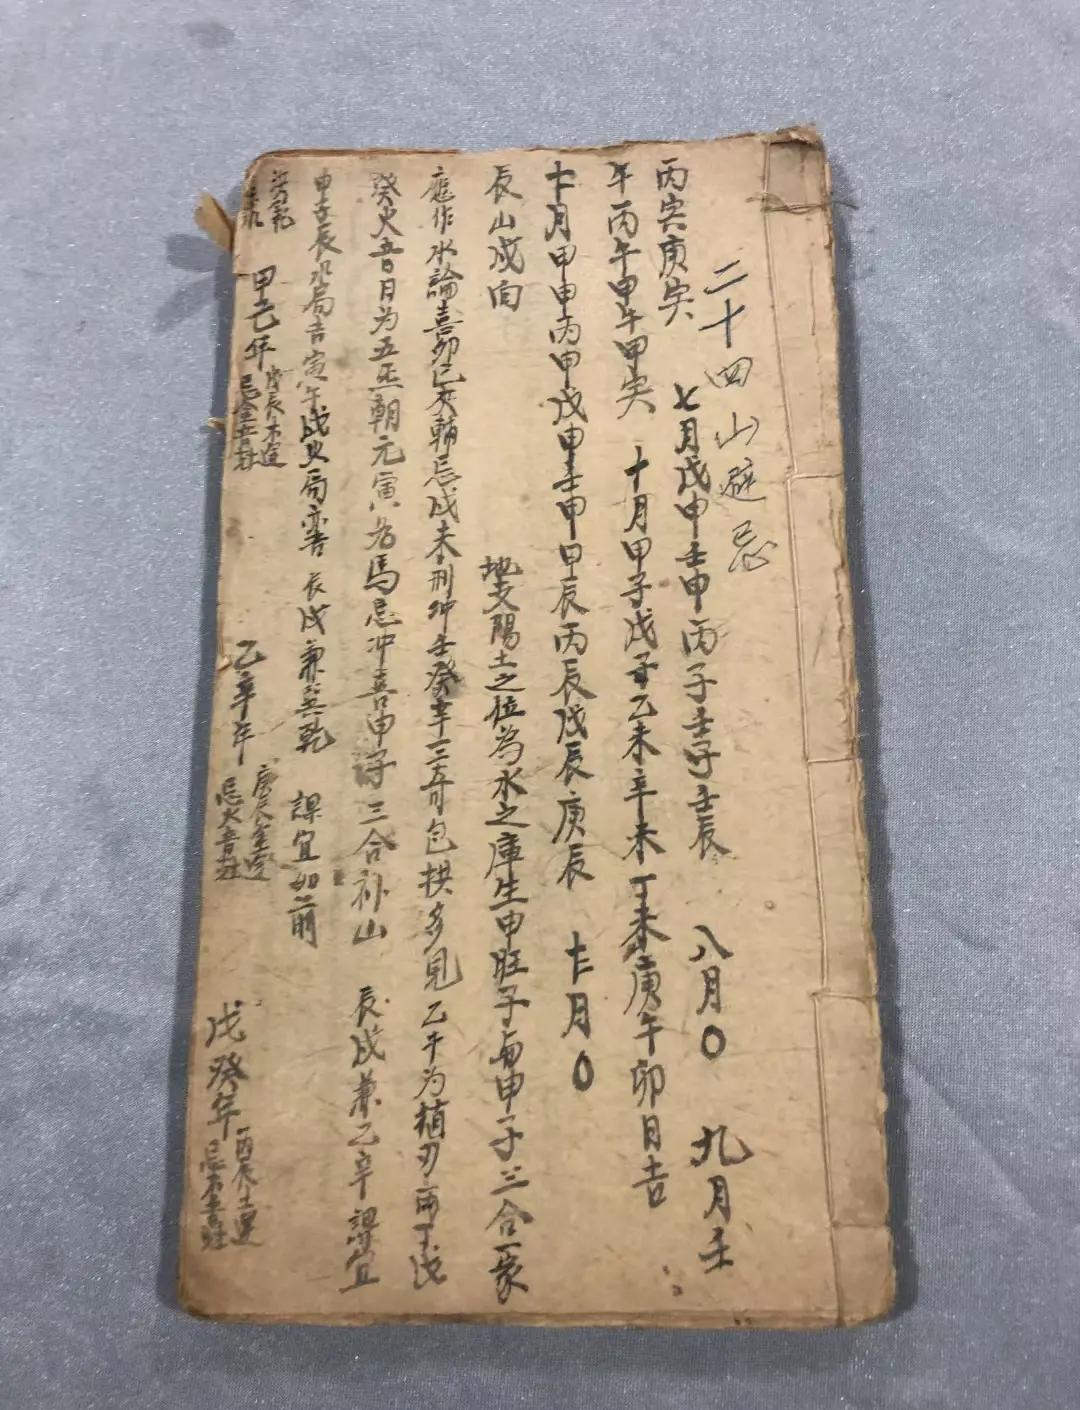 二十四山避忌
丙寅庚寅 七月戊申壬申丙子壬子壬辰 八月〇 九月壬
午丙午甲午甲寅 十月甲子戊子乙未辛未丁未庚午卯日吉
十一月甲申丙申戊申壬申甲辰丙辰戊辰庚辰 十二月〇
辰山戌向 地支陽土之位為水之庫生申旺子與申子三合一家
應作水論喜卯巳亥輔忌戌未刑沖壬癸辛一二五可包拱多見乙干为
癸火音日为五炁朝元寅为馬忌冲喜申子三合补山 辰戌兼乙辛課宜
申子辰水局吉寅午戌火局亦吉 辰戌兼巽乾 課宜如前
甲己年 戊辰木運 忌金音 乙辛年 庚辰金運 忌火音 戊癸年 丙辰土運